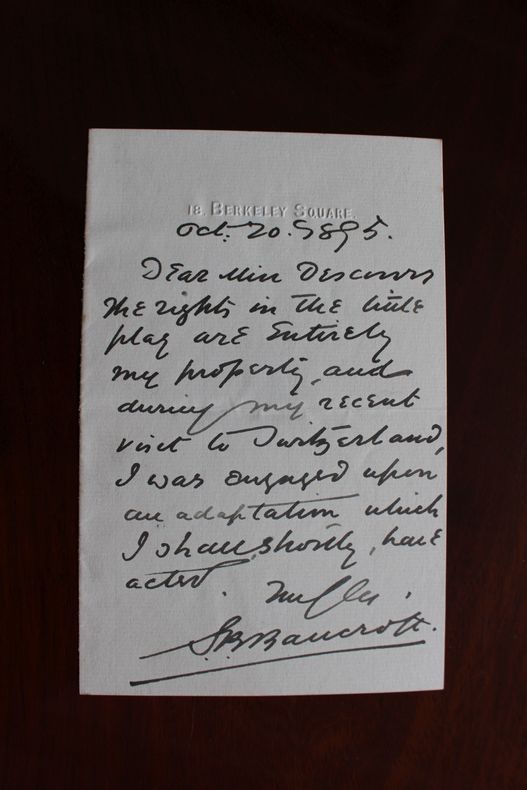 18. BERKELEY SQUARE.
Oct. 20. 1895.
Dear Miss
The rights in the little
play are Entirely
my property, and
during my recent
visit to Switzerland,
I was engaged upon
an adaptation which
I shall, shortly, have
acted.
S B Bancroft.